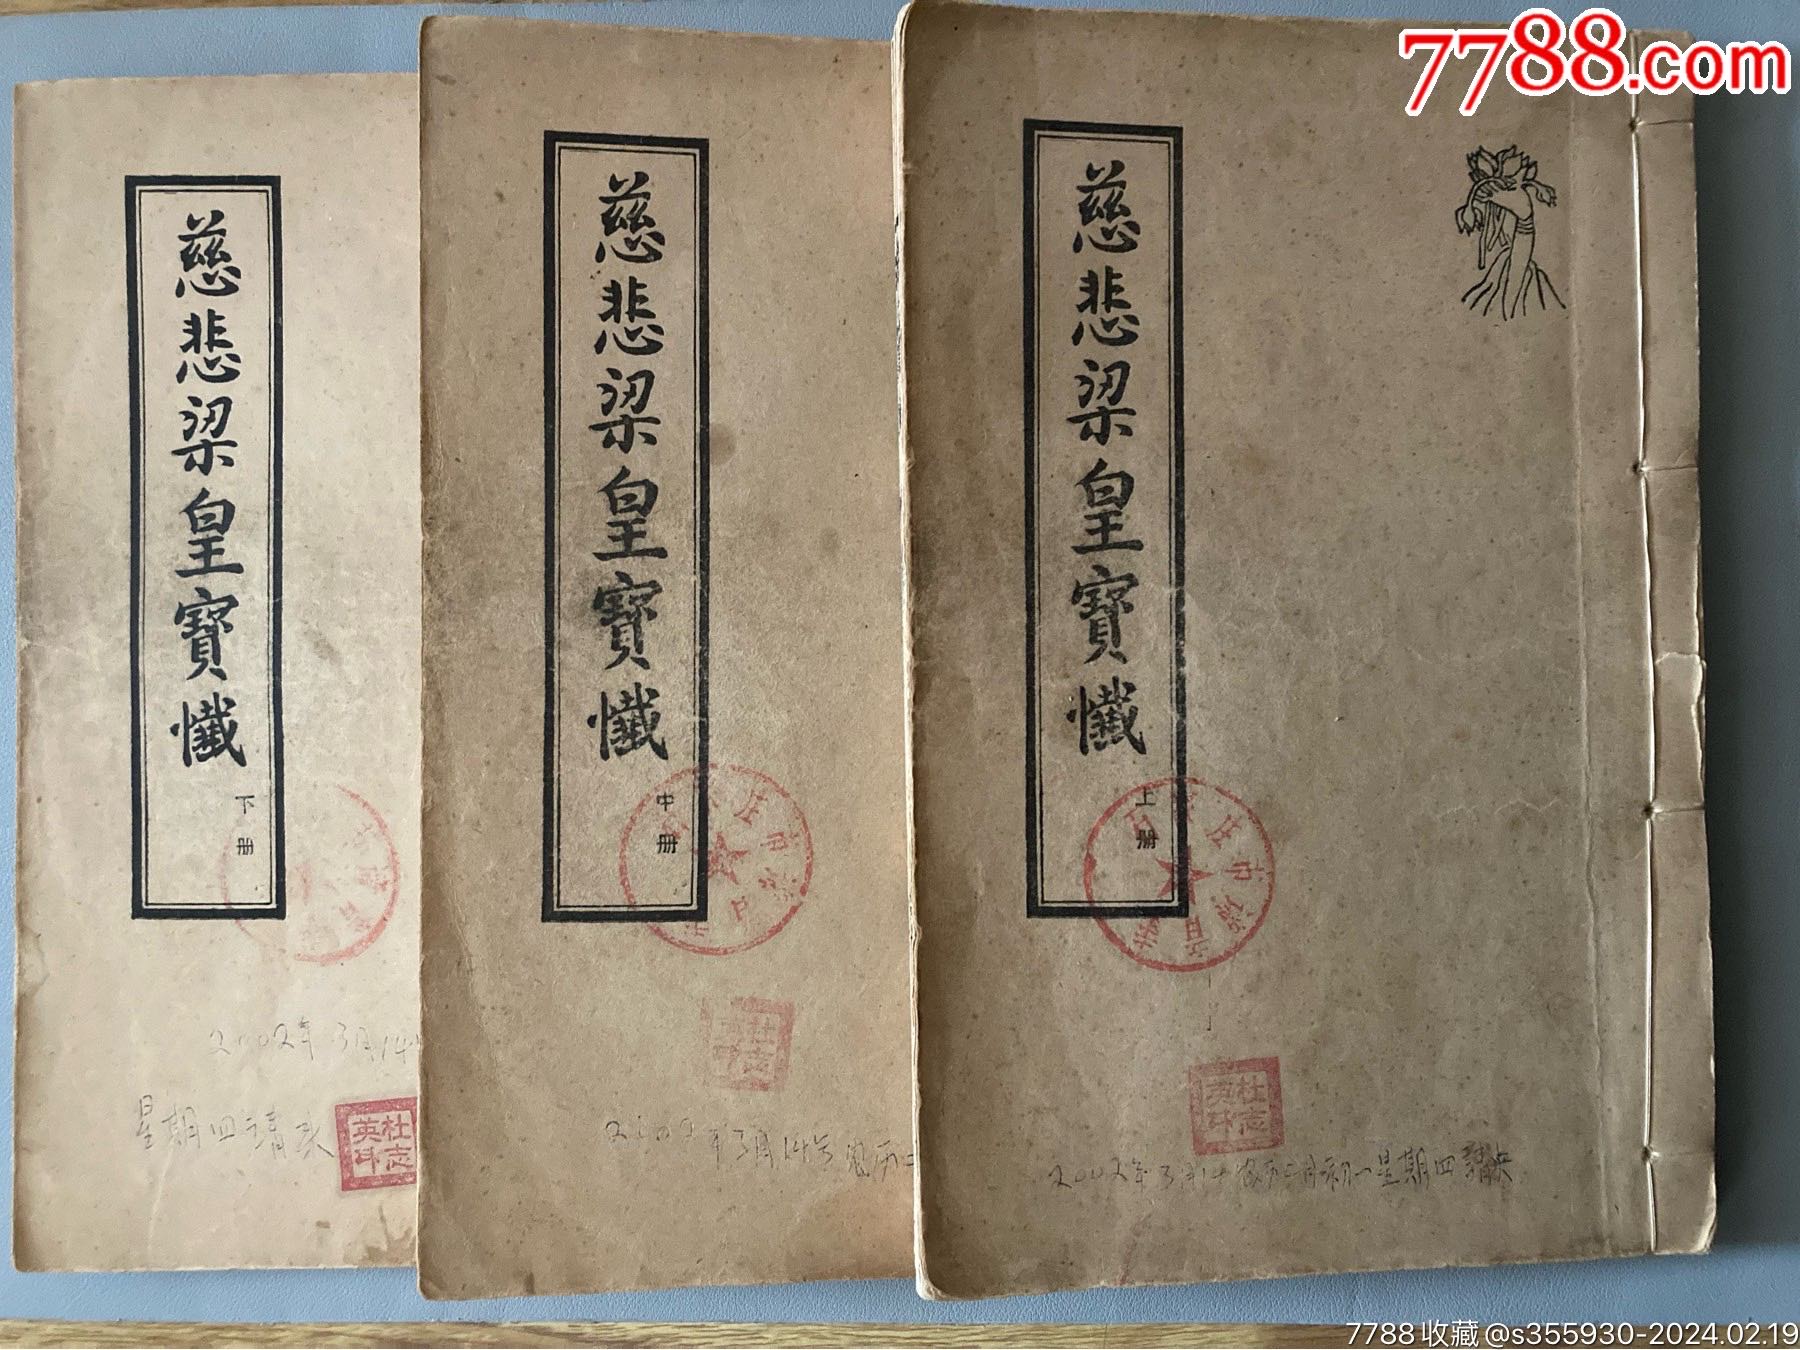 7788.com
慈悲梁皇寶懺
上册
杜志英印
2002年3月14农历二月初一星期四請
慈悲梁皇寶懺
中册
杜志
2002年3月14号农历二
慈悲梁皇寶懺
下册
2002年3月14
星期四請
杜志英印
7788收藏@s355930-2024.02.19